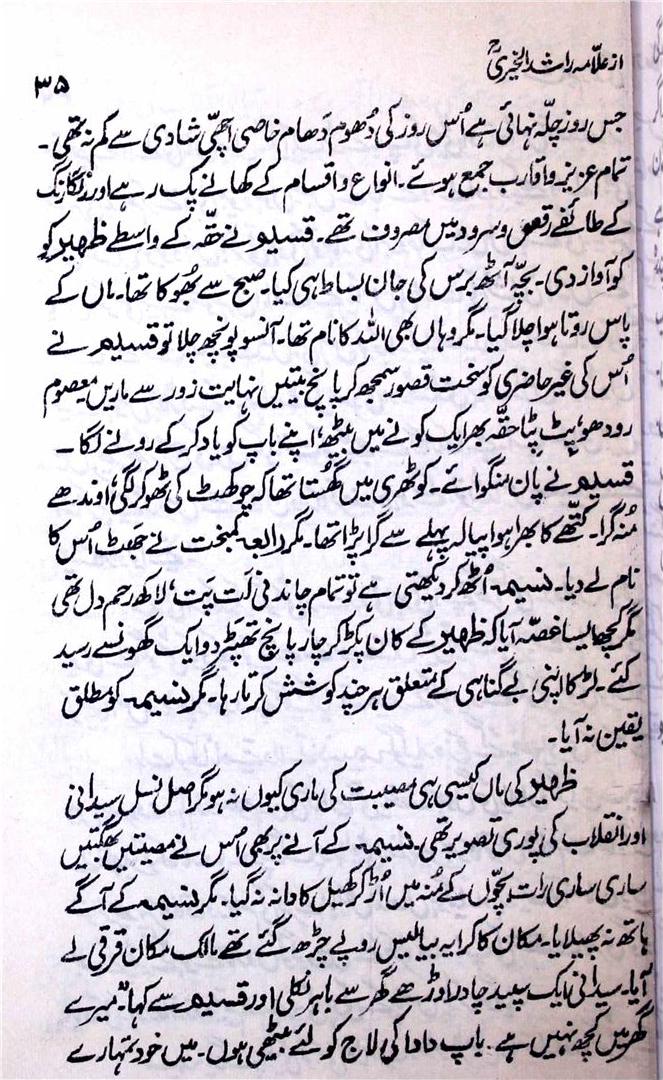 از علّامہ راشد الخیریؒ
۳۵
جس روز چلّہ نہائی ہے اُس روز کی دُھوم دَھام خاصی اچھّی شادی سے کم نہ تھی۔
تمام عزیز و اقارب جمع ہوئے۔ انواع و اقسام کے کھانے پک رہے اور رنگارنگ
کے طائفے رقص و سرود میں مصروف تھے۔ قسیم نے حقّہ کے واسطے ظہیر کو
کو آواز دی۔ بچّہ آٹھ برس کی جان بساط ہی کیا۔ صبح سے بھُوکا تھا۔ ماں کے
پاس روتا ہوا چلا گیا۔ مگر وہاں بھی اللہ کا نام تھا۔ آنسو پونچھ چلا تو قسیم نے
اُس کی غیر حاضری کو سخت قصور سمجھ کر پانچ بیتیں نہایت زور سے ماریں۔ معصوم
رو دھو، پٹ پٹا حقّہ بھر ایک کونے میں بیٹھ، اپنے باپ کو یاد کر کے رونے لگا۔
قسیم نے پان منگوائے۔ کوٹھری میں گھُستا تھا کہ چوکھٹ کی ٹھوکر لگی، اوندھے
مُنہ گرا۔ کتّھے کا بھرا ہوا پیالہ پہلے سے گرا پڑا تھا۔ مگر رابعہ کمبخت نے جَھٹ اُس کا
نام لے دیا۔ نسیمہ اُٹھ کر دیکھتی ہے تو تمام چاندنی لَت پَت، لاکھ رحم دل تھی
مگر کچھ ایسا غصّہ آیا کہ ظہیر کے کان پکڑ کر چار پانچ تھپّڑ دو ایک گھونسے رسید
کئے۔ لڑکا اپنی بے گناہی کے متعلق ہر چند کوشش کرتا رہا۔ مگر نسیمہ کو مطلق
یقین نہ آیا۔
ظہیر کی ماں کیسی ہی مصیبت کی ماری کیوں نہ ہو مگر اصل نسل سیدانی
اور انقلاب کی پوری تصویر تھی۔ نسیمہ کے آنے پر بھی اُس نے مصیبتیں بھگتیں
ساری ساری رات بچّوں کے مُنہ میں اُڑ کر کھیل کا دانہ نہ گیا۔ مگر نسیمہ کے آگے
ہاتھ نہ پھیلایا۔ مکان کا کرایہ بیالیس روپے چڑھ گئے تھے مالک مکان قرقی لے
آیا۔ سیدانی ایک سپید چادر اوڑھے گھر سے باہر نکلی اور قسیم سے کہا۔ "میرے
گھر میں کچھ نہیں ہے۔ باپ دادا کی لاج کو لئے بیٹھی ہوں۔ میں خود تمہارے